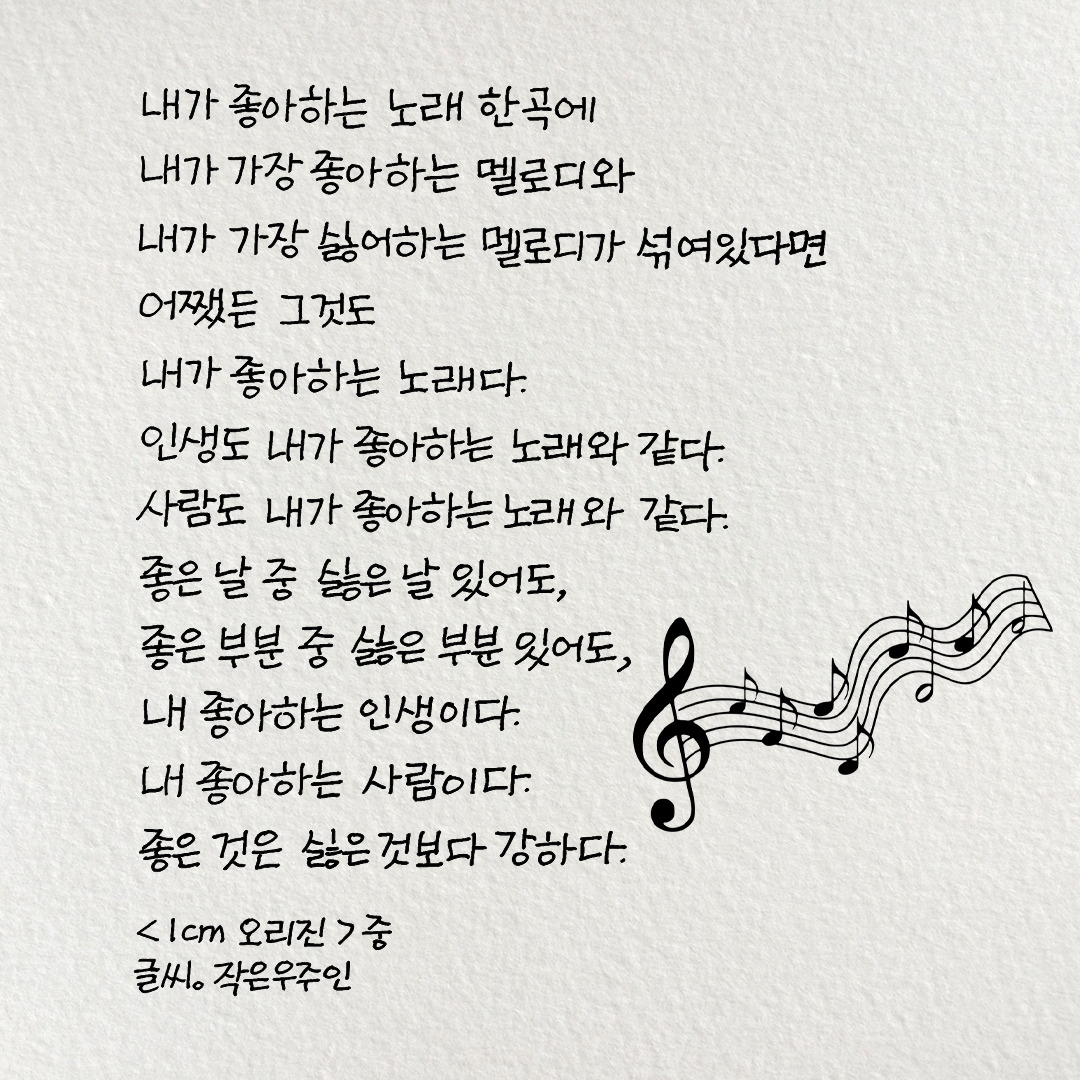 내가 좋아하는 노래 한곡에
내가 가장 좋아하는 멜로디와
내가 가장 싫어하는 멜로디가 섞여있다면
어쨌든 그것도
내가 좋아하는 노래다.
인생도 내가 좋아하는 노래와 같다.
사람도 내가 좋아하는 노래와 같다.
좋은 날 중 싫은 날 있어도,
좋은 부분 중 싫은 부분 있어도,
내 좋아하는 인생이다.
내 좋아하는 사람이다.
좋은 것은 싫은 것보다 강하다.
<1cm 오리진>중
글씨。작은우주인